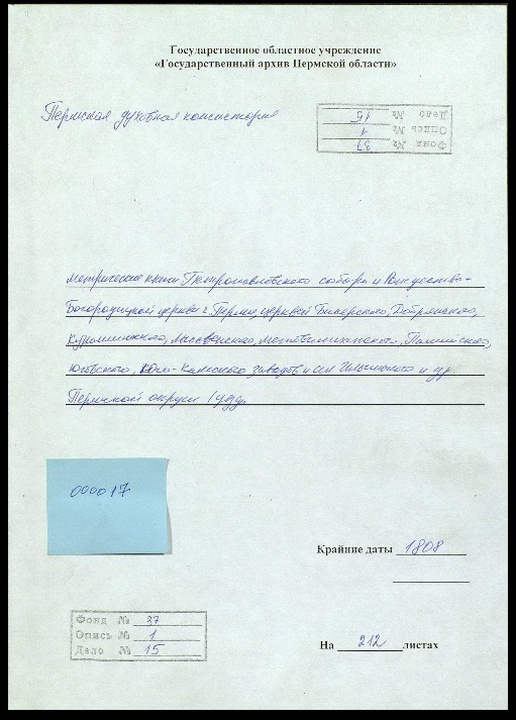 Государственное областное учреждение
«Государственный архив Пермской области»
Пермская духовная консистория
Фонд № 37
Опись № 1
Дело № 15
метрические книги Петропавловского собора и Рождество-
Богородицкой церкви г. Перми, церквей Бисерского, Добрянского,
Мотовилихинского,
Юговского, Юго-Камского заводов и сел Ильинского и др.
Пермской округи
000017
Крайние даты 1808
Фонд № 37
Опись № 1
Дело № 15
На 212 листах